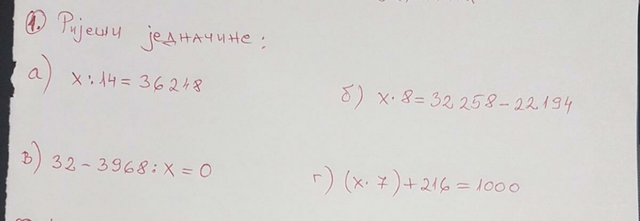 1. Ријеши једначине:
а) x : 14 = 36248
б) x · 8 = 32258 - 22194
в) 32 - 3968 : x = 0
г) (x · 7) + 216 = 1000